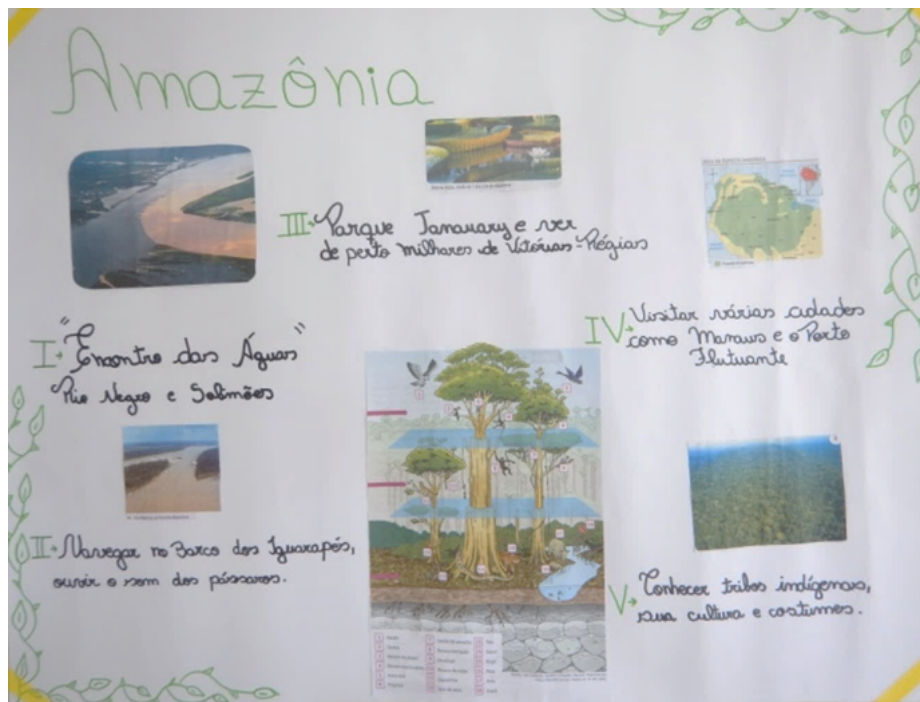 Amazônia
I. "Encontro das Águas"
Rio Negro e Solimões
II. Navegar no Barco dos Iguarapés,
ouvir o som dos pássaros.
III. Parque Januarry e ver
de perto milhares de Vitórias-Régias
IV. Visitar várias cidades
como Manaus e o Porto
Flutuante
V. Conhecer tribos indígenas,
sua cultura e costumes.